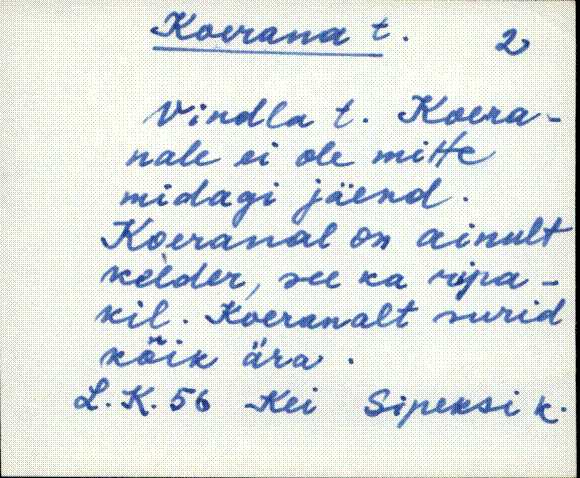 Koerana t. 2
Vindla t. Koera-
nale ei ole mitte
midagi jäend.
Koeranal on ainult
kelder, see ka ripa-
kil. Koeranalt surid
kõik ära.
L.K. 56 Kei Sipeksi k.